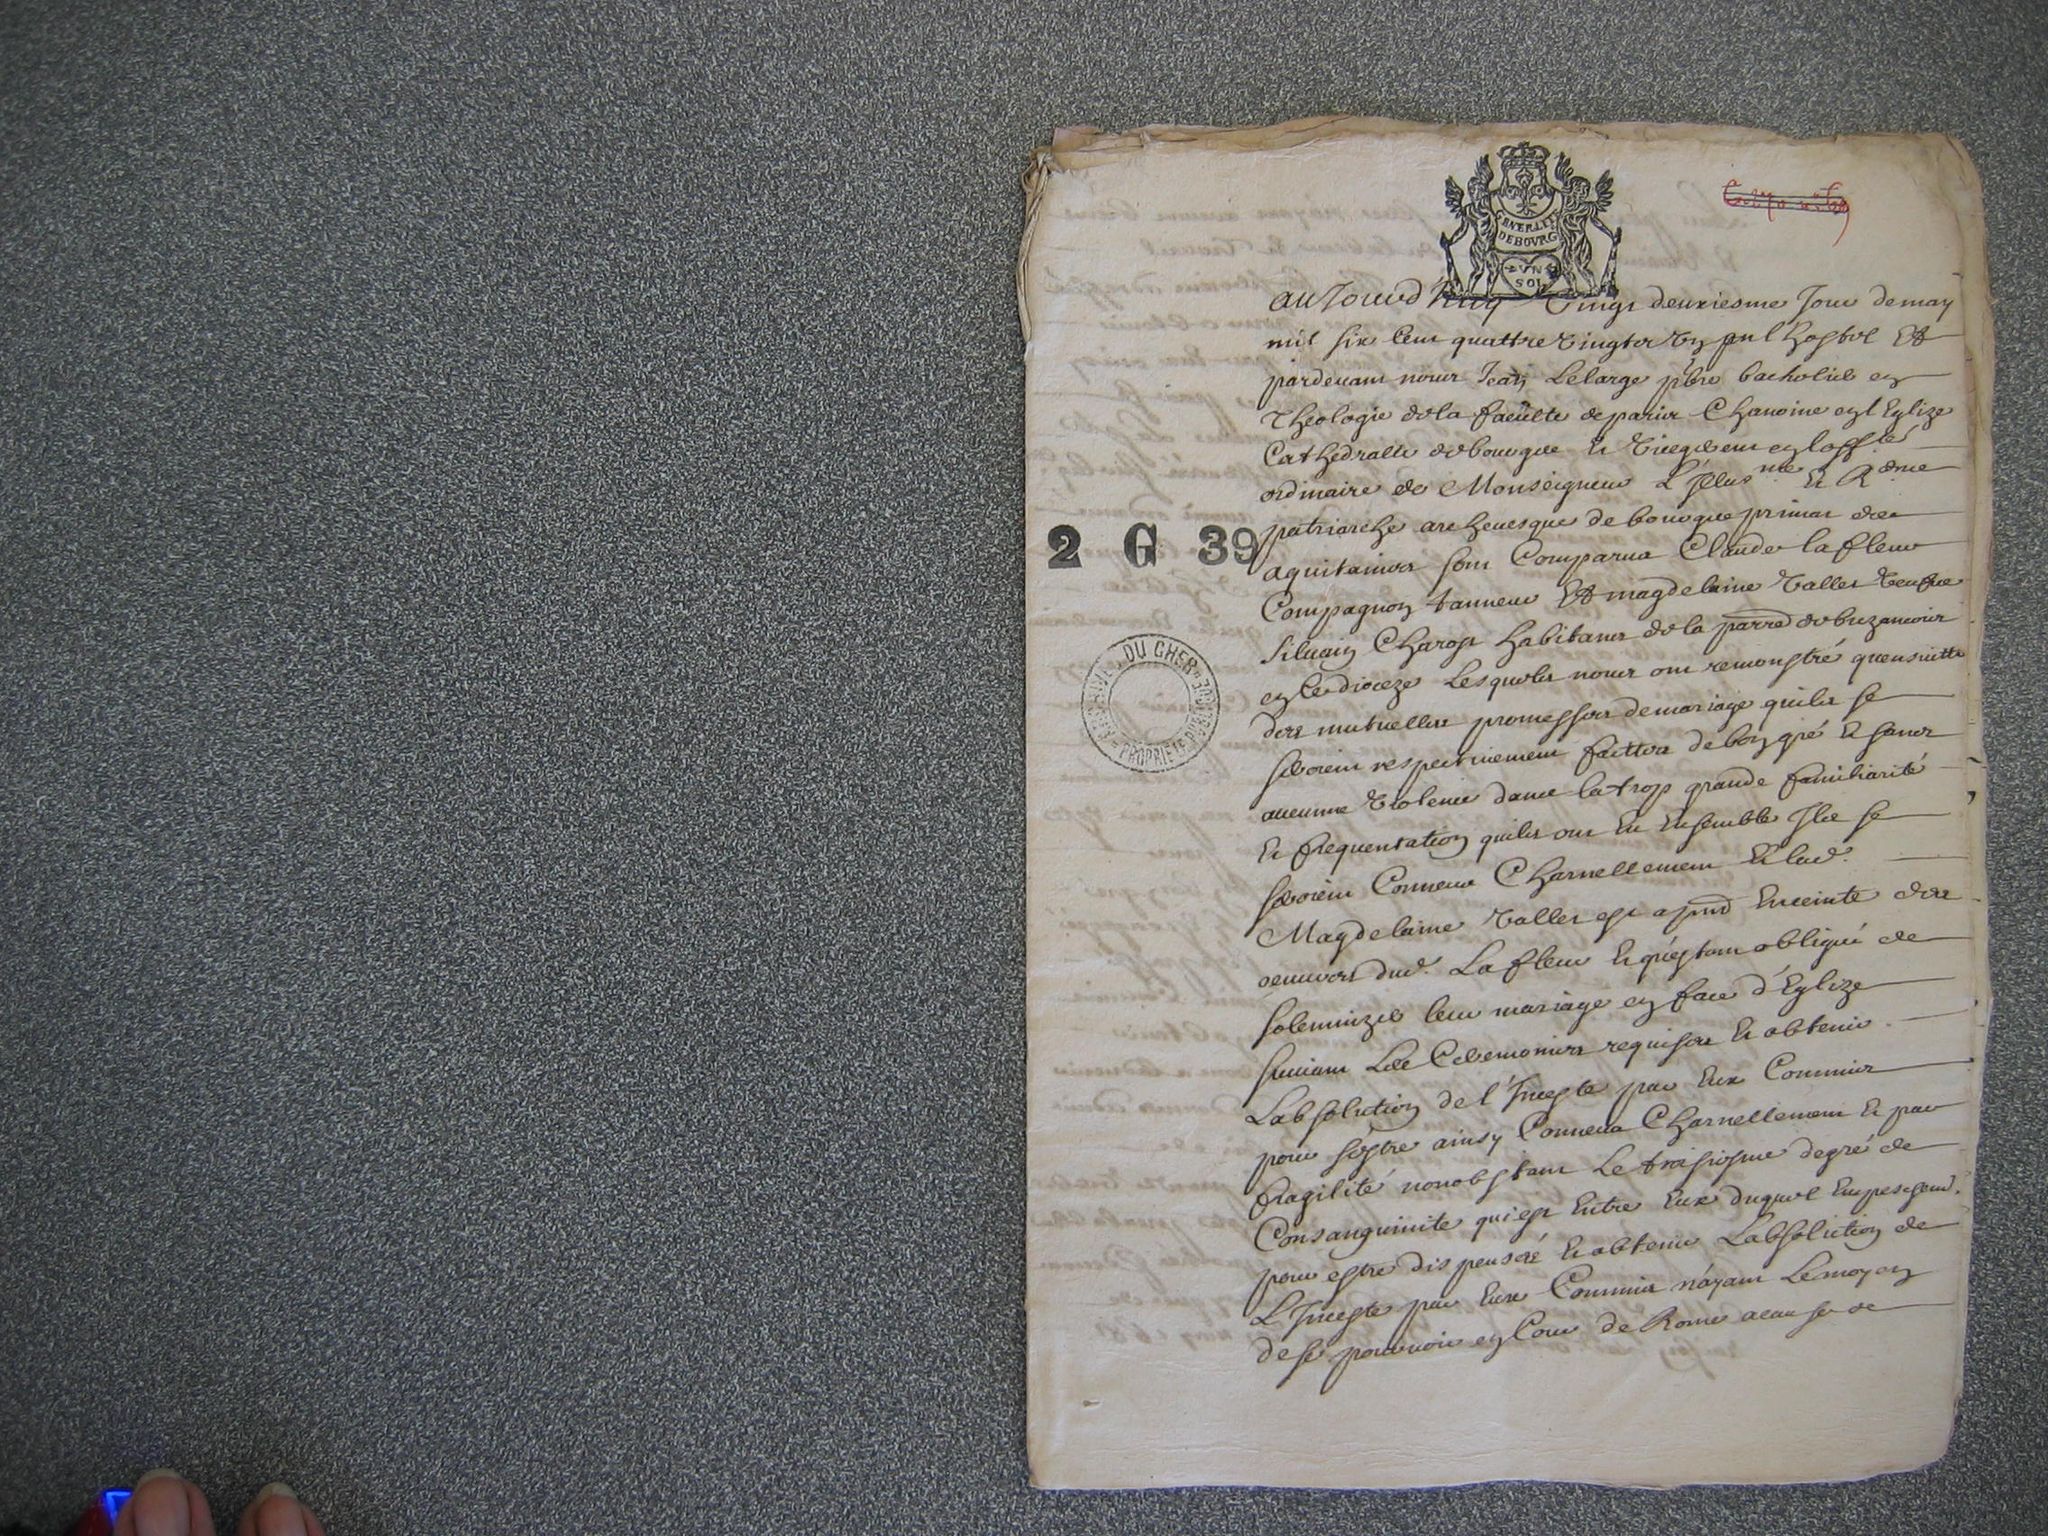 GNERALITE
DE BOVRG
VN
SOL
aujourd'huy vingt deuxiesme Jour de may
mil six cent quattre vingt et un en l'hostel et
pardevant nous Jean Lelarge pbre bachelier en
Theologie de la faculté de paris Chanoine en l'Eglize
Cathedralle de bourges et vicegerent en l'offté
ordinaire de Monseigneur L'Illus.me et R.dme
patriarche archevesque de bourges primat des
2 G 39
aquitaines sont Comparus Claude lafleur
Compagnon tanneur et magdelaine vallet veufve
silvain Charost habitans de la parred de buzancois
en ce dioceze Lesquels nous ont remonstré quensuitte
des mutuelles promesses de mariage quils se
ARCHIVES DU CHER
PROPRIETE PUBLIQUE
seroient respectivement faittes de bon gré et sans
aucunne violence dans la trop grande familiarité
et frequentation quils ont eu ensemble Ils se
seroient Connus Charnellement et lad.
Magdelaine vallet est a pnt Enceinte des
oeuvres dud. Lafleur et questant obligés de
solemnizer leur mariage en face d'Eglize
suivant Les Ceremonies requises et obtenir
Labsolution de l'Inceste par Eux Commis
pour s'estre ainsy Connus Charnellement et par
fragilité nonobstant Le troisiesme degré de
Consanguinite qui est Entre Eux duquel Empeschemt.
pour estre dispensés et obtenir Labsolution de
L'Inceste par Eux Commis n'ayant Le moyen
de se pourvoir en Cour de Rome a cause de